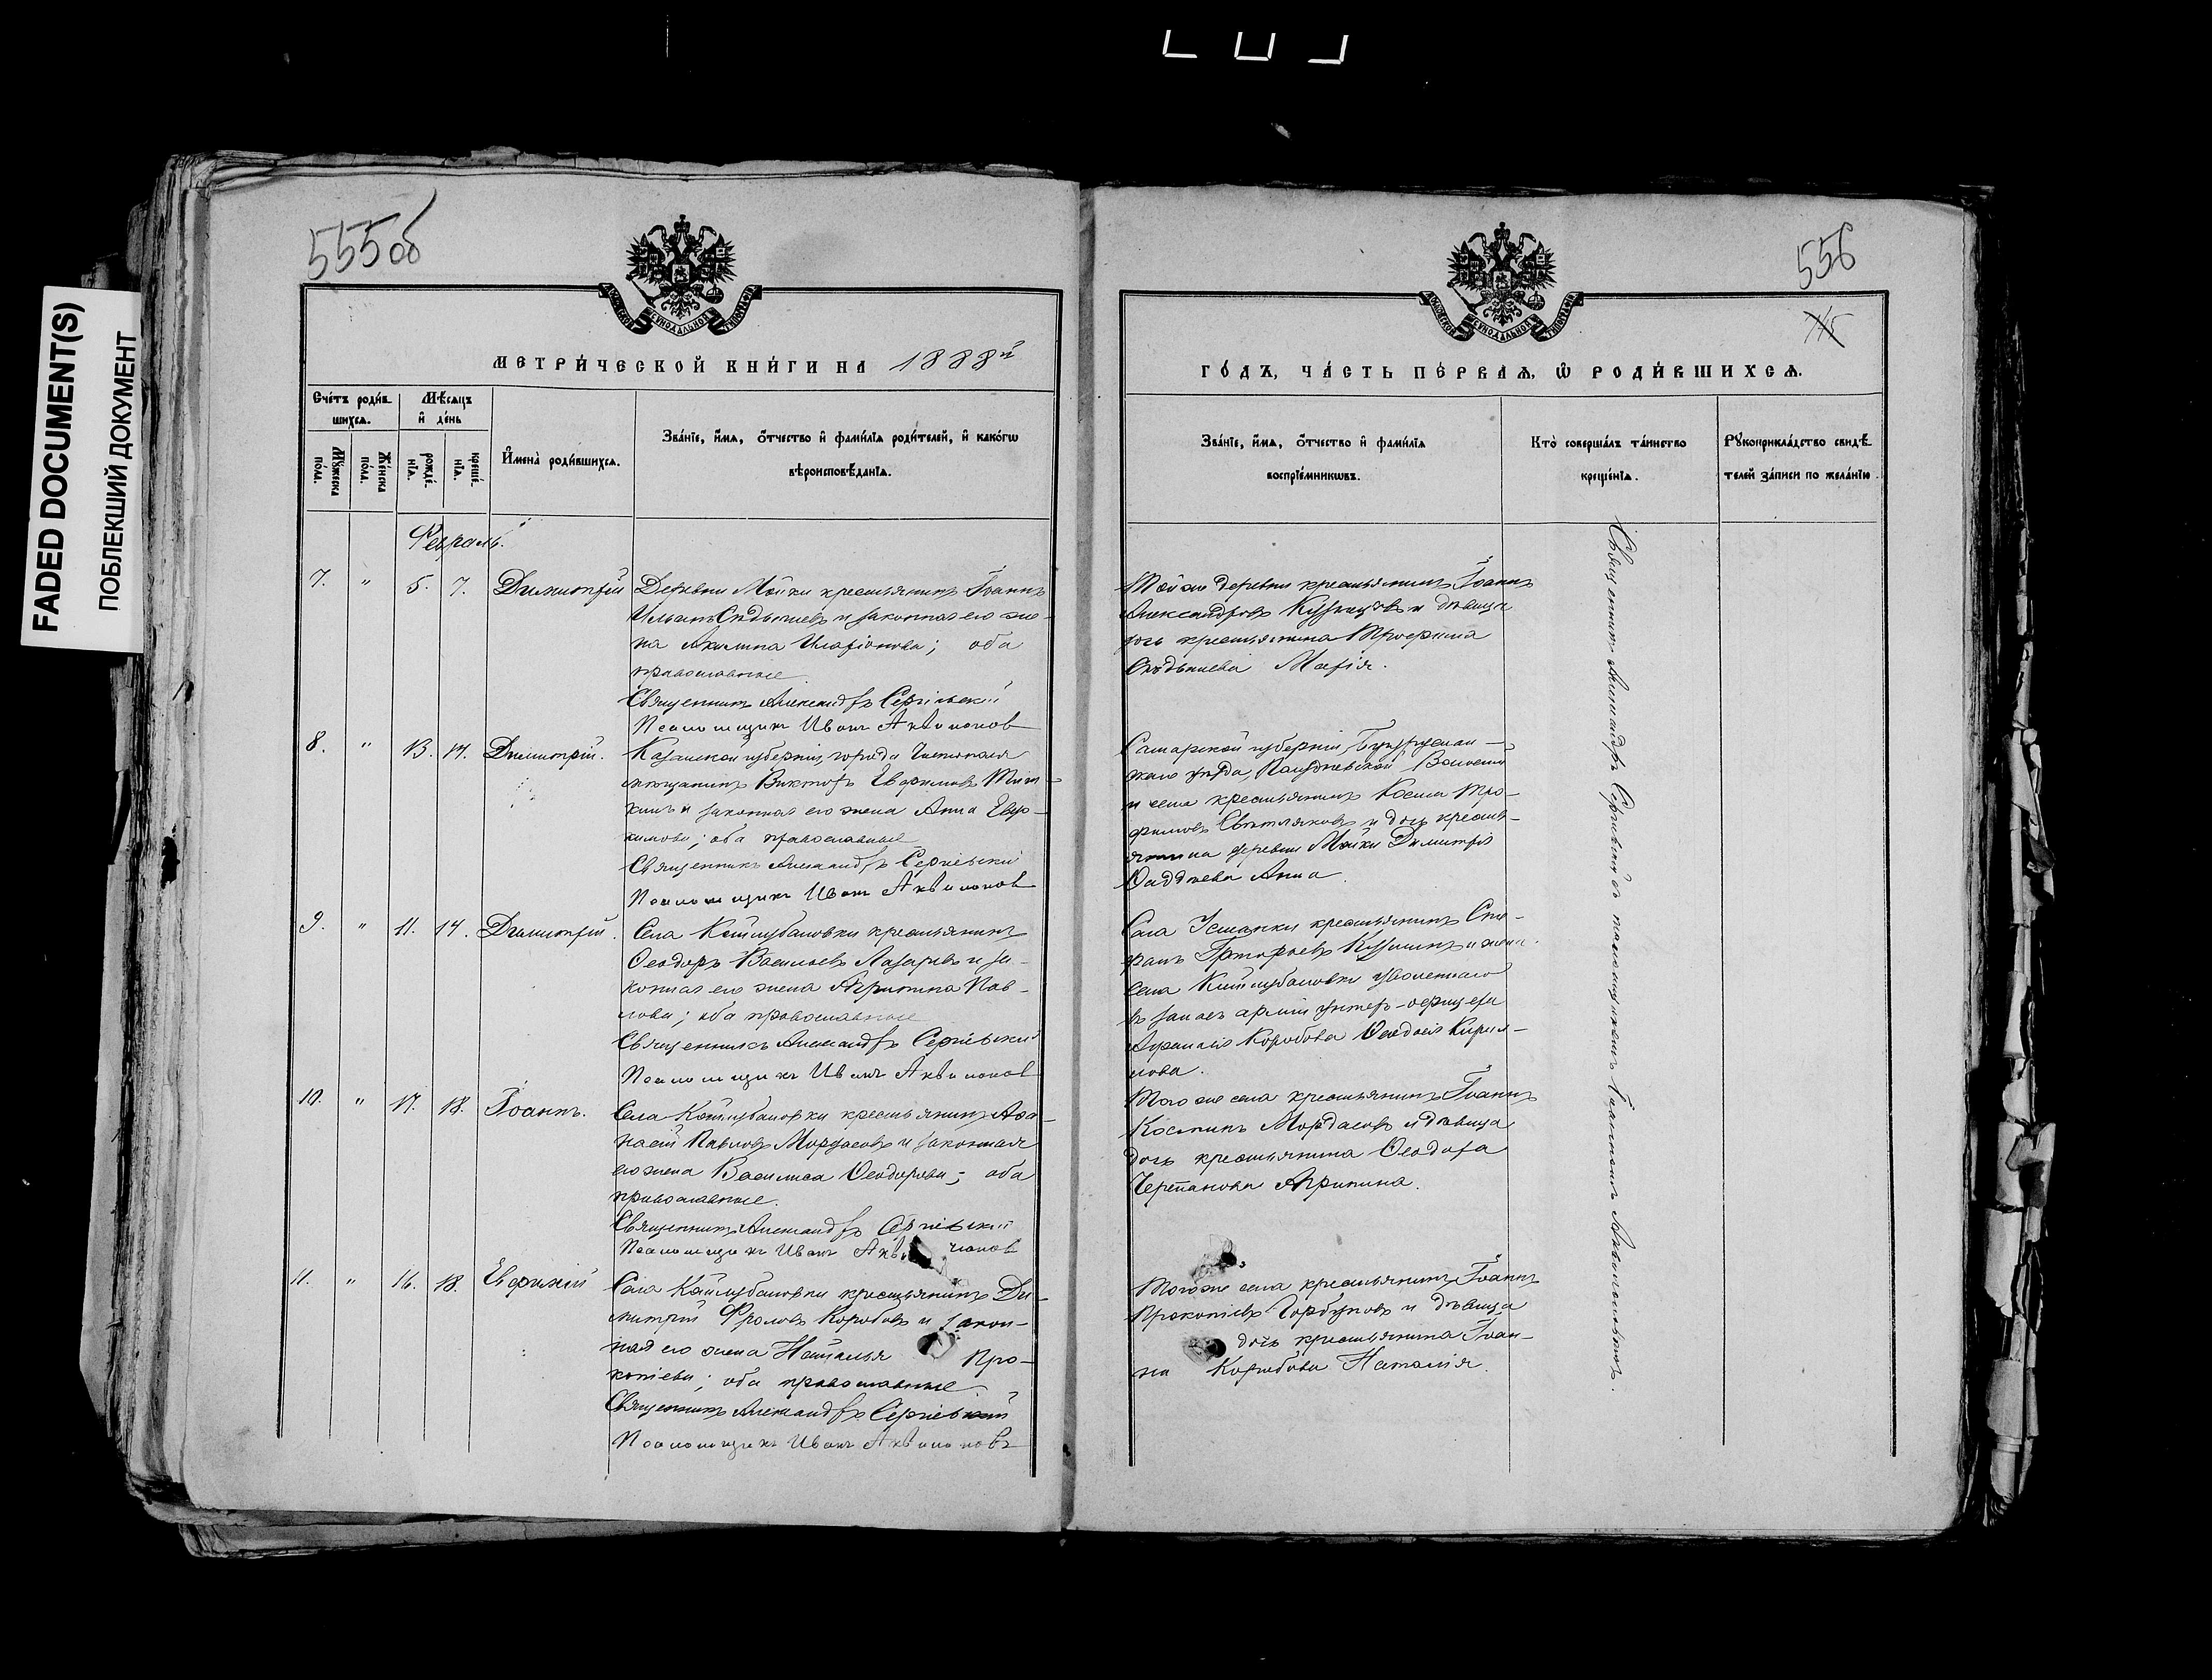 FADED DOCUMENT(S)
ПОБЛЕКШИЙ ДОКУМЕНТ
555об
МЕТРИ́ЧЕСКОЙ КНИ́ГИ НА 1888й
Сче́тъ роди́в-
шихсѧ.
Мѣ́сѧцъ
и҆ де́нь
Мꙋ́жеска
по́ла.
Же́нска
по́ла.
рожде́-
нїѧ.
креще́-
нїѧ.
И҆мена̀ роди́вшихсѧ.
Зва́нїе, и҆́мѧ, ѻ҆́тчество и҆ фами́лїѧ роди́телей, и҆ како́гѡ
вѣроисповѣ́данїѧ.
Февраль.
7. " 5. 7. Димитрій
Деревни Мойки крестьянинъ Іоаннъ
и законная его же-
на Акилина Иларіонова; оба
православные
Священникъ Александръ Сергіевскій
Псаломщикъ Иванъ Аквилоновъ
8. " 13. 14. Димитрій.
Казанской губерніи, города Чистополя
мещанинъ Викторъ Евфимовъ
и законная его жена Анна Евфи-
мова; оба православные
Священникъ Александръ Сергіевскій
Псаломщикъ Иванъ Аквилоновъ
9. " 11. 14. Димитрій.
Села крестьянинъ
Ѳеодоръ Васильевъ Лазаревъ и за-
конная его жена Агрипина Пав-
лова; оба православные
Священникъ Александръ Сергіевскій
Псаломщикъ Иванъ Аквилоновъ
10. " 17. 18. Іоаннъ.
Села крестьянинъ Аѳа-
насій Павловъ Мордасовъ и законная
его жена Василиса Ѳеодорова; оба
православные.
Священникъ Александръ Сергіевскій
Псаломщикъ Иванъ Аквилоновъ
11. " 16. 18. Евфимій
Села крестьянинъ Ди-
митрій Фроловъ Коробовъ и закон-
ная его жена Наталья Про-
копіева; оба православные
Священникъ Александръ Сергіевскій
Псаломщикъ Иванъ Аквилоновъ
556
ГО́ДЪ, ЧА́СТЬ ПЕ́РВАѦ, Ѡ҆ РОДИ́ВШИХСѦ.
Зва́нїе, и҆́мѧ, ѻ҆́тчество и҆ фами́лїѧ
воспрїе́мникѡвъ.
Кто̀ соверша́лъ та́инство
креще́нїѧ.
Рꙋкоприкла́дство свидѣ́-
телей за́писи по жела́нїю
Той же деревни крестьянинъ Іоаннъ
Александровъ Кузнецовъ и дѣвица
дочь крестьянина Трофима
Марія.
Самарской губерніи, Бугуруслан-
скаго уѣзда, Волости
и села крестьянинъ Косма Тро-
фимовъ Свѣтляковъ и дочь кресть-
янина деревни Мойки Димитрія
Ѳаддѣева Анна.
Села Усманки крестьянинъ Сте-
фанъ Григорьевъ Кузминъ и жена
села уволеннаго
въ запасъ арміи унтеръ-офицера
Аѳанасія Коробова Ѳеодосія Кирил-
лова.
Того же села крестьянинъ Іоаннъ
Костинъ Мордасовъ и дѣвица
дочь крестьянина Ѳеодора
Черепанова Агрипина.
Того же села крестьянинъ Іоаннъ
Прокопіевъ Горбуновъ и дѣвица
дочь крестьянина Іоан-
на Коробова Наталія.
Священникъ Александръ Сергіевскій съ псаломщикомъ Іоанномъ Аквилоновымъ.